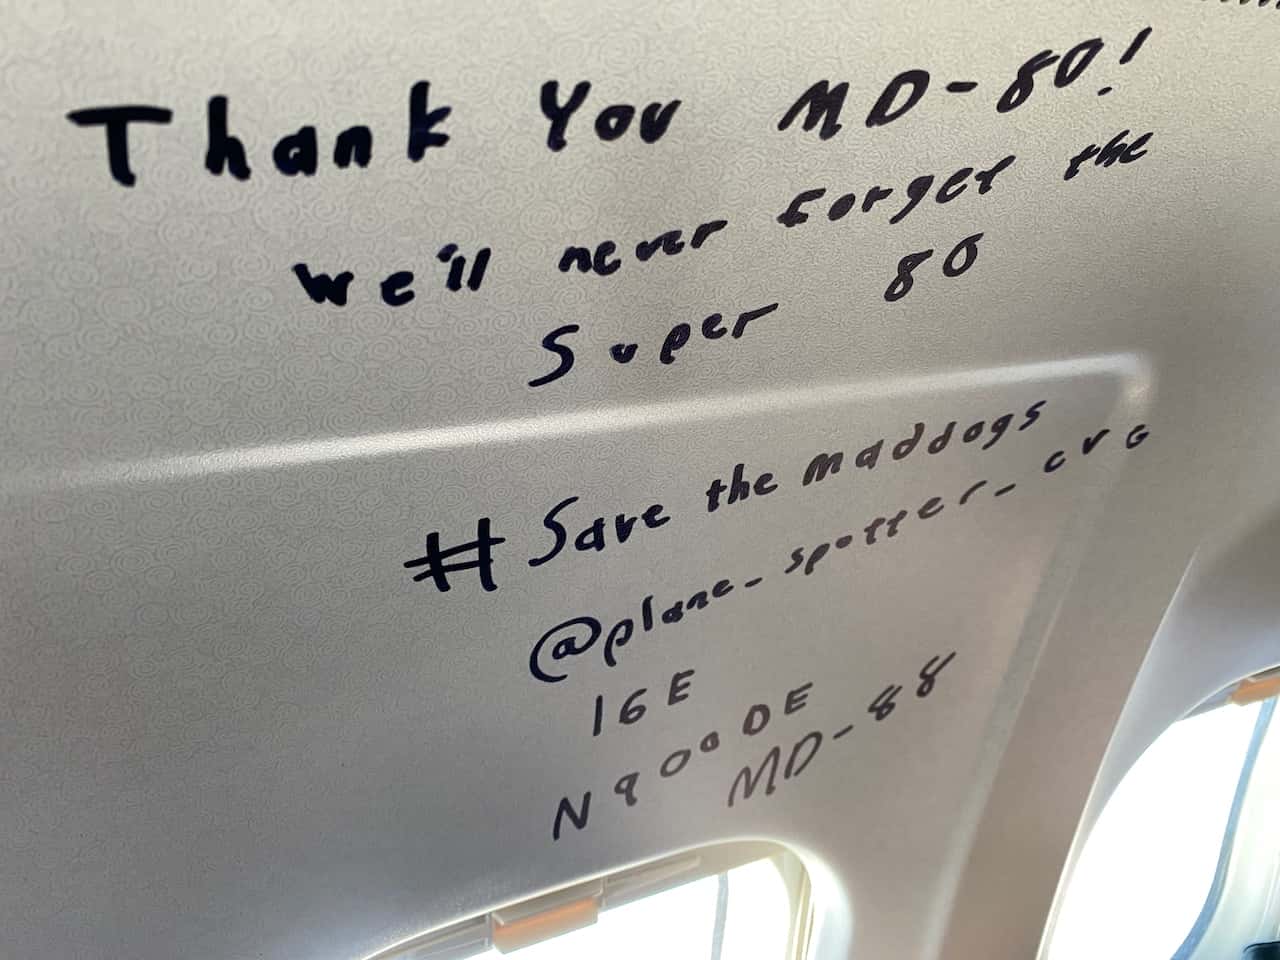 Thank You MD-80!
We'll never forget the
Super 80
#Save the maddogs
@plane_spotter_cvg
16E
N900DE
MD-88